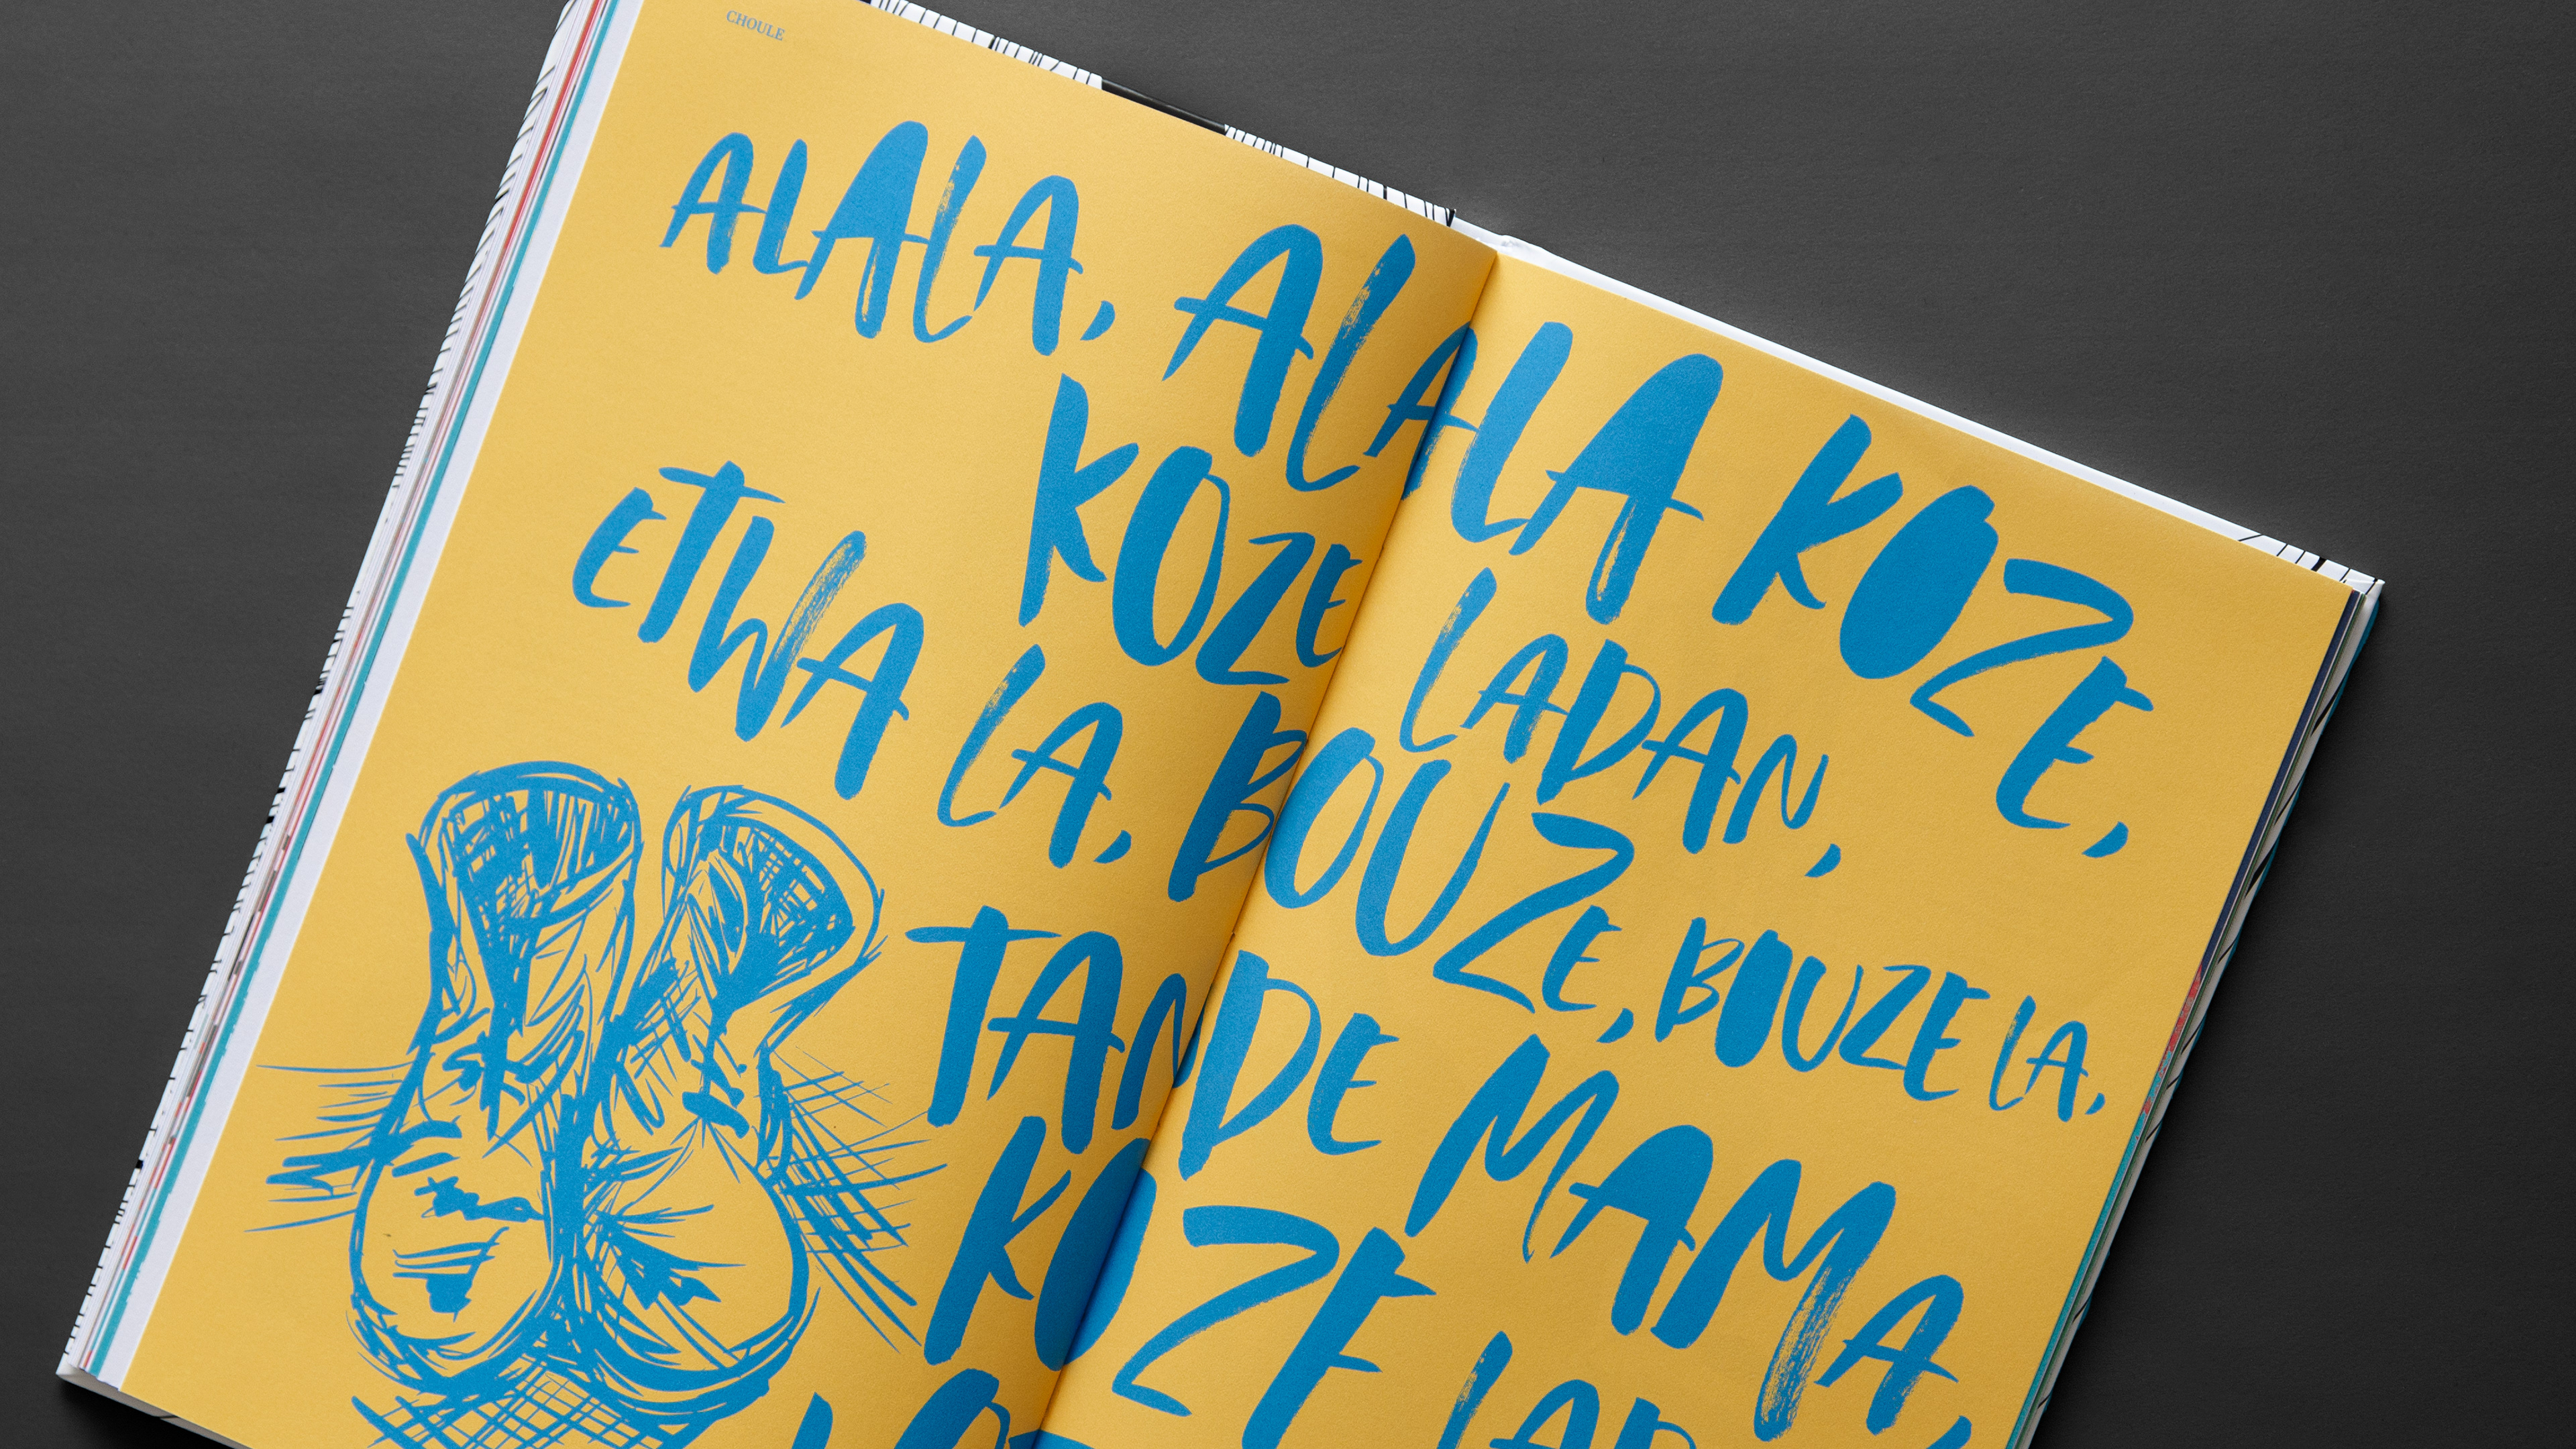 CHOULE
ALALA, ALALALA KOZE,
KOZE LADAN,
ETWA LA, BOUZE, BOUZE LA,
TANDE MAMA,
KOZE